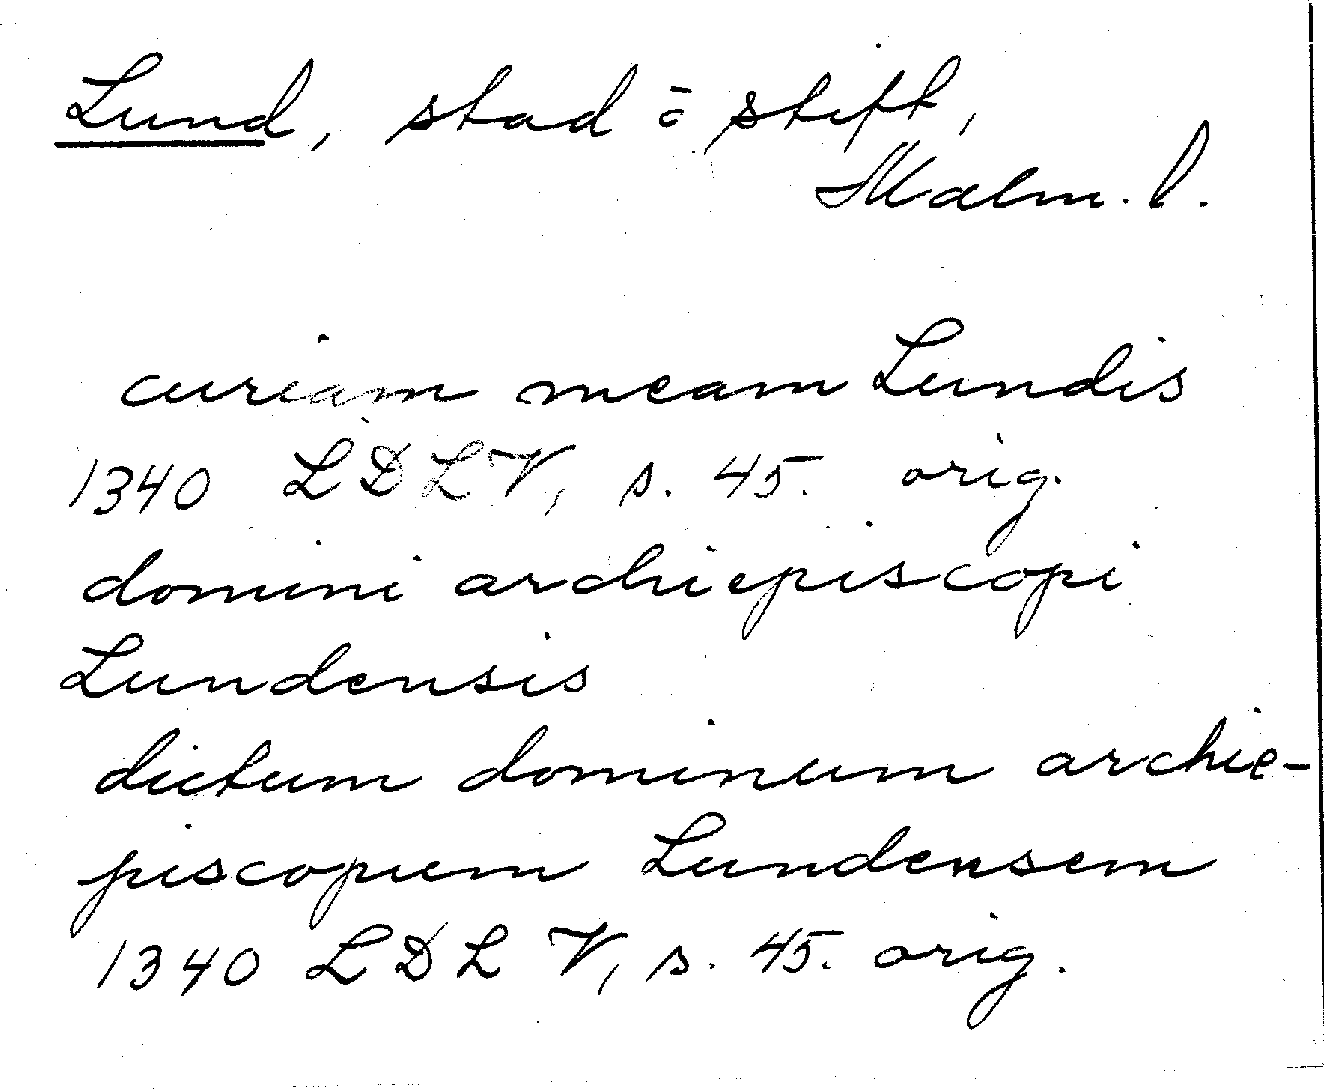 Lund, stad o stift,
Malm. l.
curiam meam Lundis
1340 LDLV, s. 45. orig.
domini archiepiscopi
Lundensis
dictum dominum archie-
piscopum Lundensem
1340 LDL V, s. 45. orig.